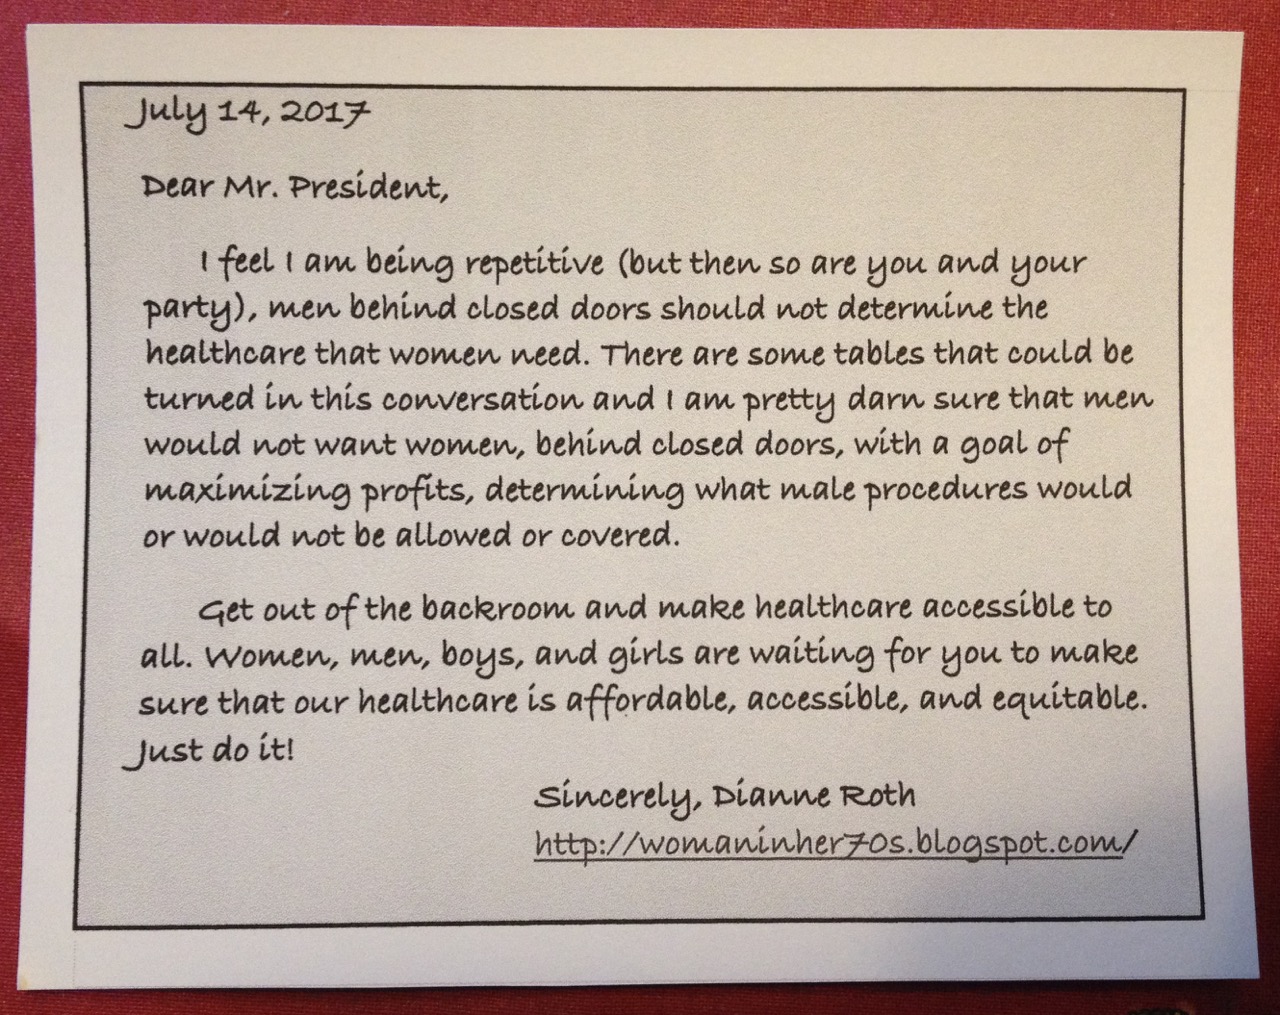 July 14, 2017
Dear Mr. President,
I feel I am being repetitive (but then so are you and your
party), men behind closed doors should not determine the
healthcare that women need. There are some tables that could be
turned in this conversation and I am pretty darn sure that men
would not want women, behind closed doors, with a goal of
maximizing profits, determining what male procedures would
or would not be allowed or covered.
Get out of the backroom and make healthcare accessible to
all. Women, men, boys, and girls are waiting for you to make
sure that our healthcare is affordable, accessible, and equitable.
Just do it!
Sincerely, Dianne Roth
http://womaninher70s.blogspot.com/